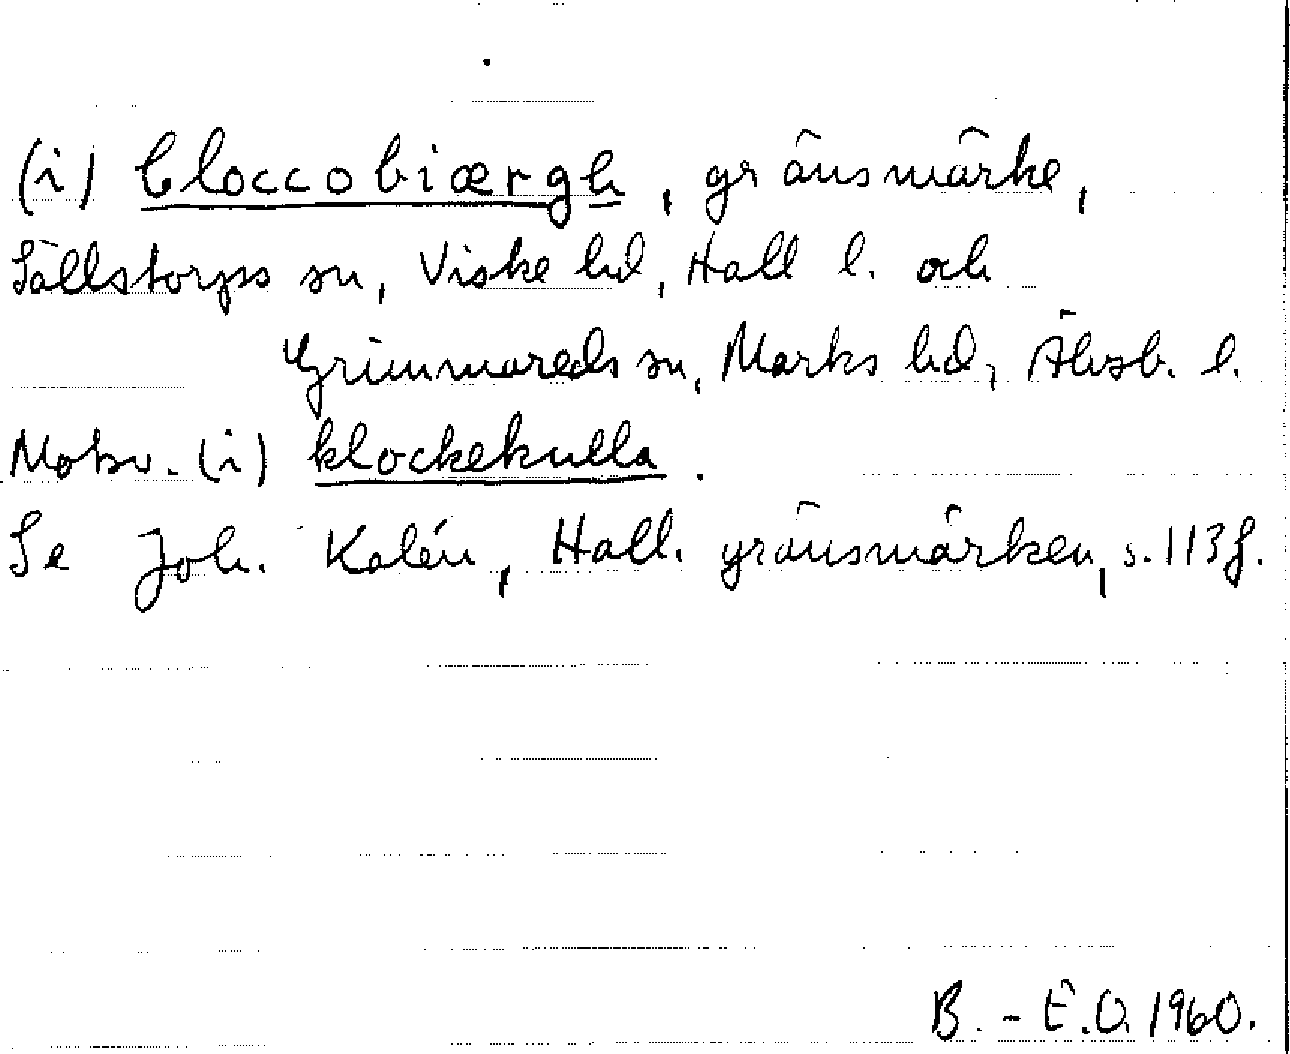 (i) Cloccobiærgh, gränsmärke,
Sällstorps sn, Viske hd, Hall l. och
Grimmareds sn, Marks hd, Älvsb. l.
Motsv. (i) klockekulla.
Se Joh. Kalén, Hall. gränsmärken, s. 113 f.
B.-E.O. 1960.